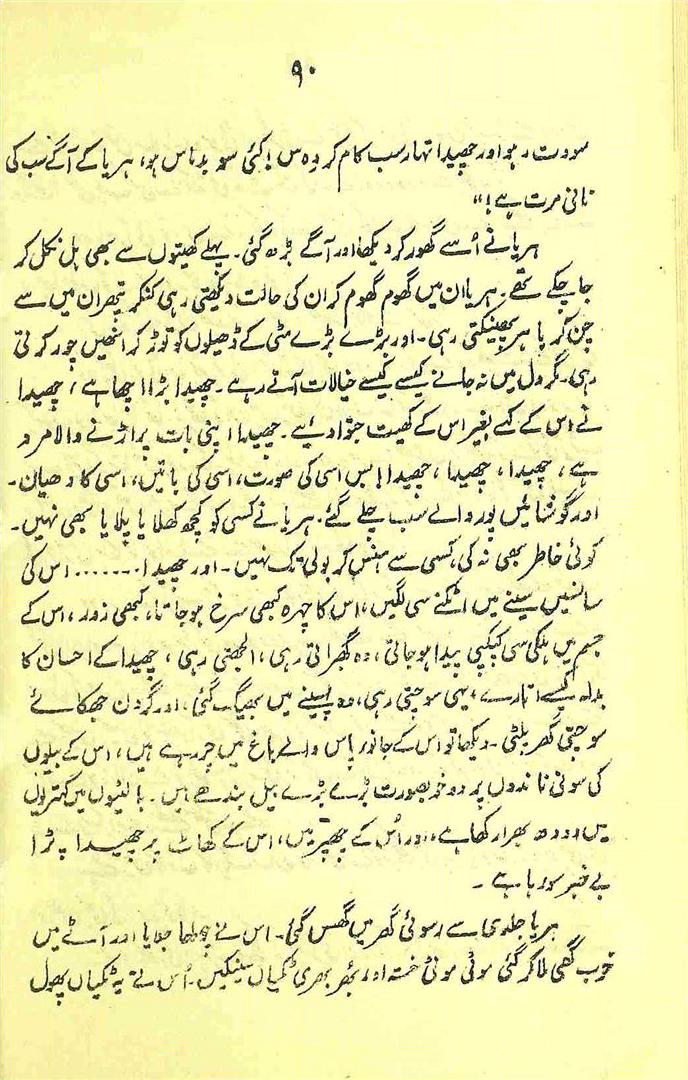 ۹۰
سووت رہو اور چھیدا تہار سب کام کر دِہ س! کئی سو بدناس ہو، ہریا کے آگے سب کی
نانی مرت ہے!"
ہریا نے اُسے گھور کر دیکھا اور آگے بڑھ گئی۔ پہلے کھیتوں سے بھی ہل نکل کر
جا چکے تھے۔ ہریا ان میں گھوم گھوم کر ان کی حالت دیکھتی رہی کنکر پتھر ان میں سے
چن کر باہر پھینکتی رہی۔ اور بڑے بڑے مٹی کے ڈھیلوں کو توڑ کر انھیں چور کرتی
رہی۔ مگر دل میں نہ جانے کیسے کیسے خیالات آتے رہے۔ چھیدا بڑا اچھا ہے، چھیدا
نے اس کے کہے بغیر اس کے کھیت جوا دیئے۔ چھیدا اپنی بات پر اڑنے والا مرد
ہے، چھیدا، چھیدا، چھیدا! بس اسی کی صورت، اسی کی باتیں، اسی کا دھیان۔
اور گوشائیں پور والے سب چلے گئے۔ ہریا نے کسی کو کچھ کھلایا پلایا بھی نہیں۔
کوئی خاطر بھی نہ کی، کسی سے ہنس کر بولی تک نہیں۔ اور چھیدا ....... اس کی
سانسیں سینے میں اٹکنے سی لگیں، اس کا چہرہ کبھی سرخ ہو جاتا، کبھی زرد، اس کے
جسم میں ہلکی سی کپکپی پیدا ہو جاتی، وہ گھبراتی رہی، الجھتی رہی، چھیدا کے احسان کا
بدلہ کیسے اتارے، یہی سوچتی رہی، وہ پسینے میں بھیگ گئی، اور گردن جھکائے
سوچتی گھر پلٹی۔ دیکھا تو اس کے جانور پاس والے باغ میں چر رہے ہیں، اس کے بیلوں
کی سونی ناندوں پر دو خوبصورت بڑے بڑے بیل بندھے ہیں۔ بالٹیوں میں
میں دودھ بھرا رکھا ہے، اور اُس کے چھپر میں، اس کے کھاٹ پر چھیدا پڑا
بے خبر سو رہا ہے۔
ہریا جلدی سے رسوئی گھر میں گھس گئی۔ اس نے چولھا جلایا اور آٹے میں
خوب گھی ملا کر کئی موٹی موٹی خستہ اور بھُر بھری ٹکیاں سینکیں۔ اُس نے یہ ٹکیاں پھول